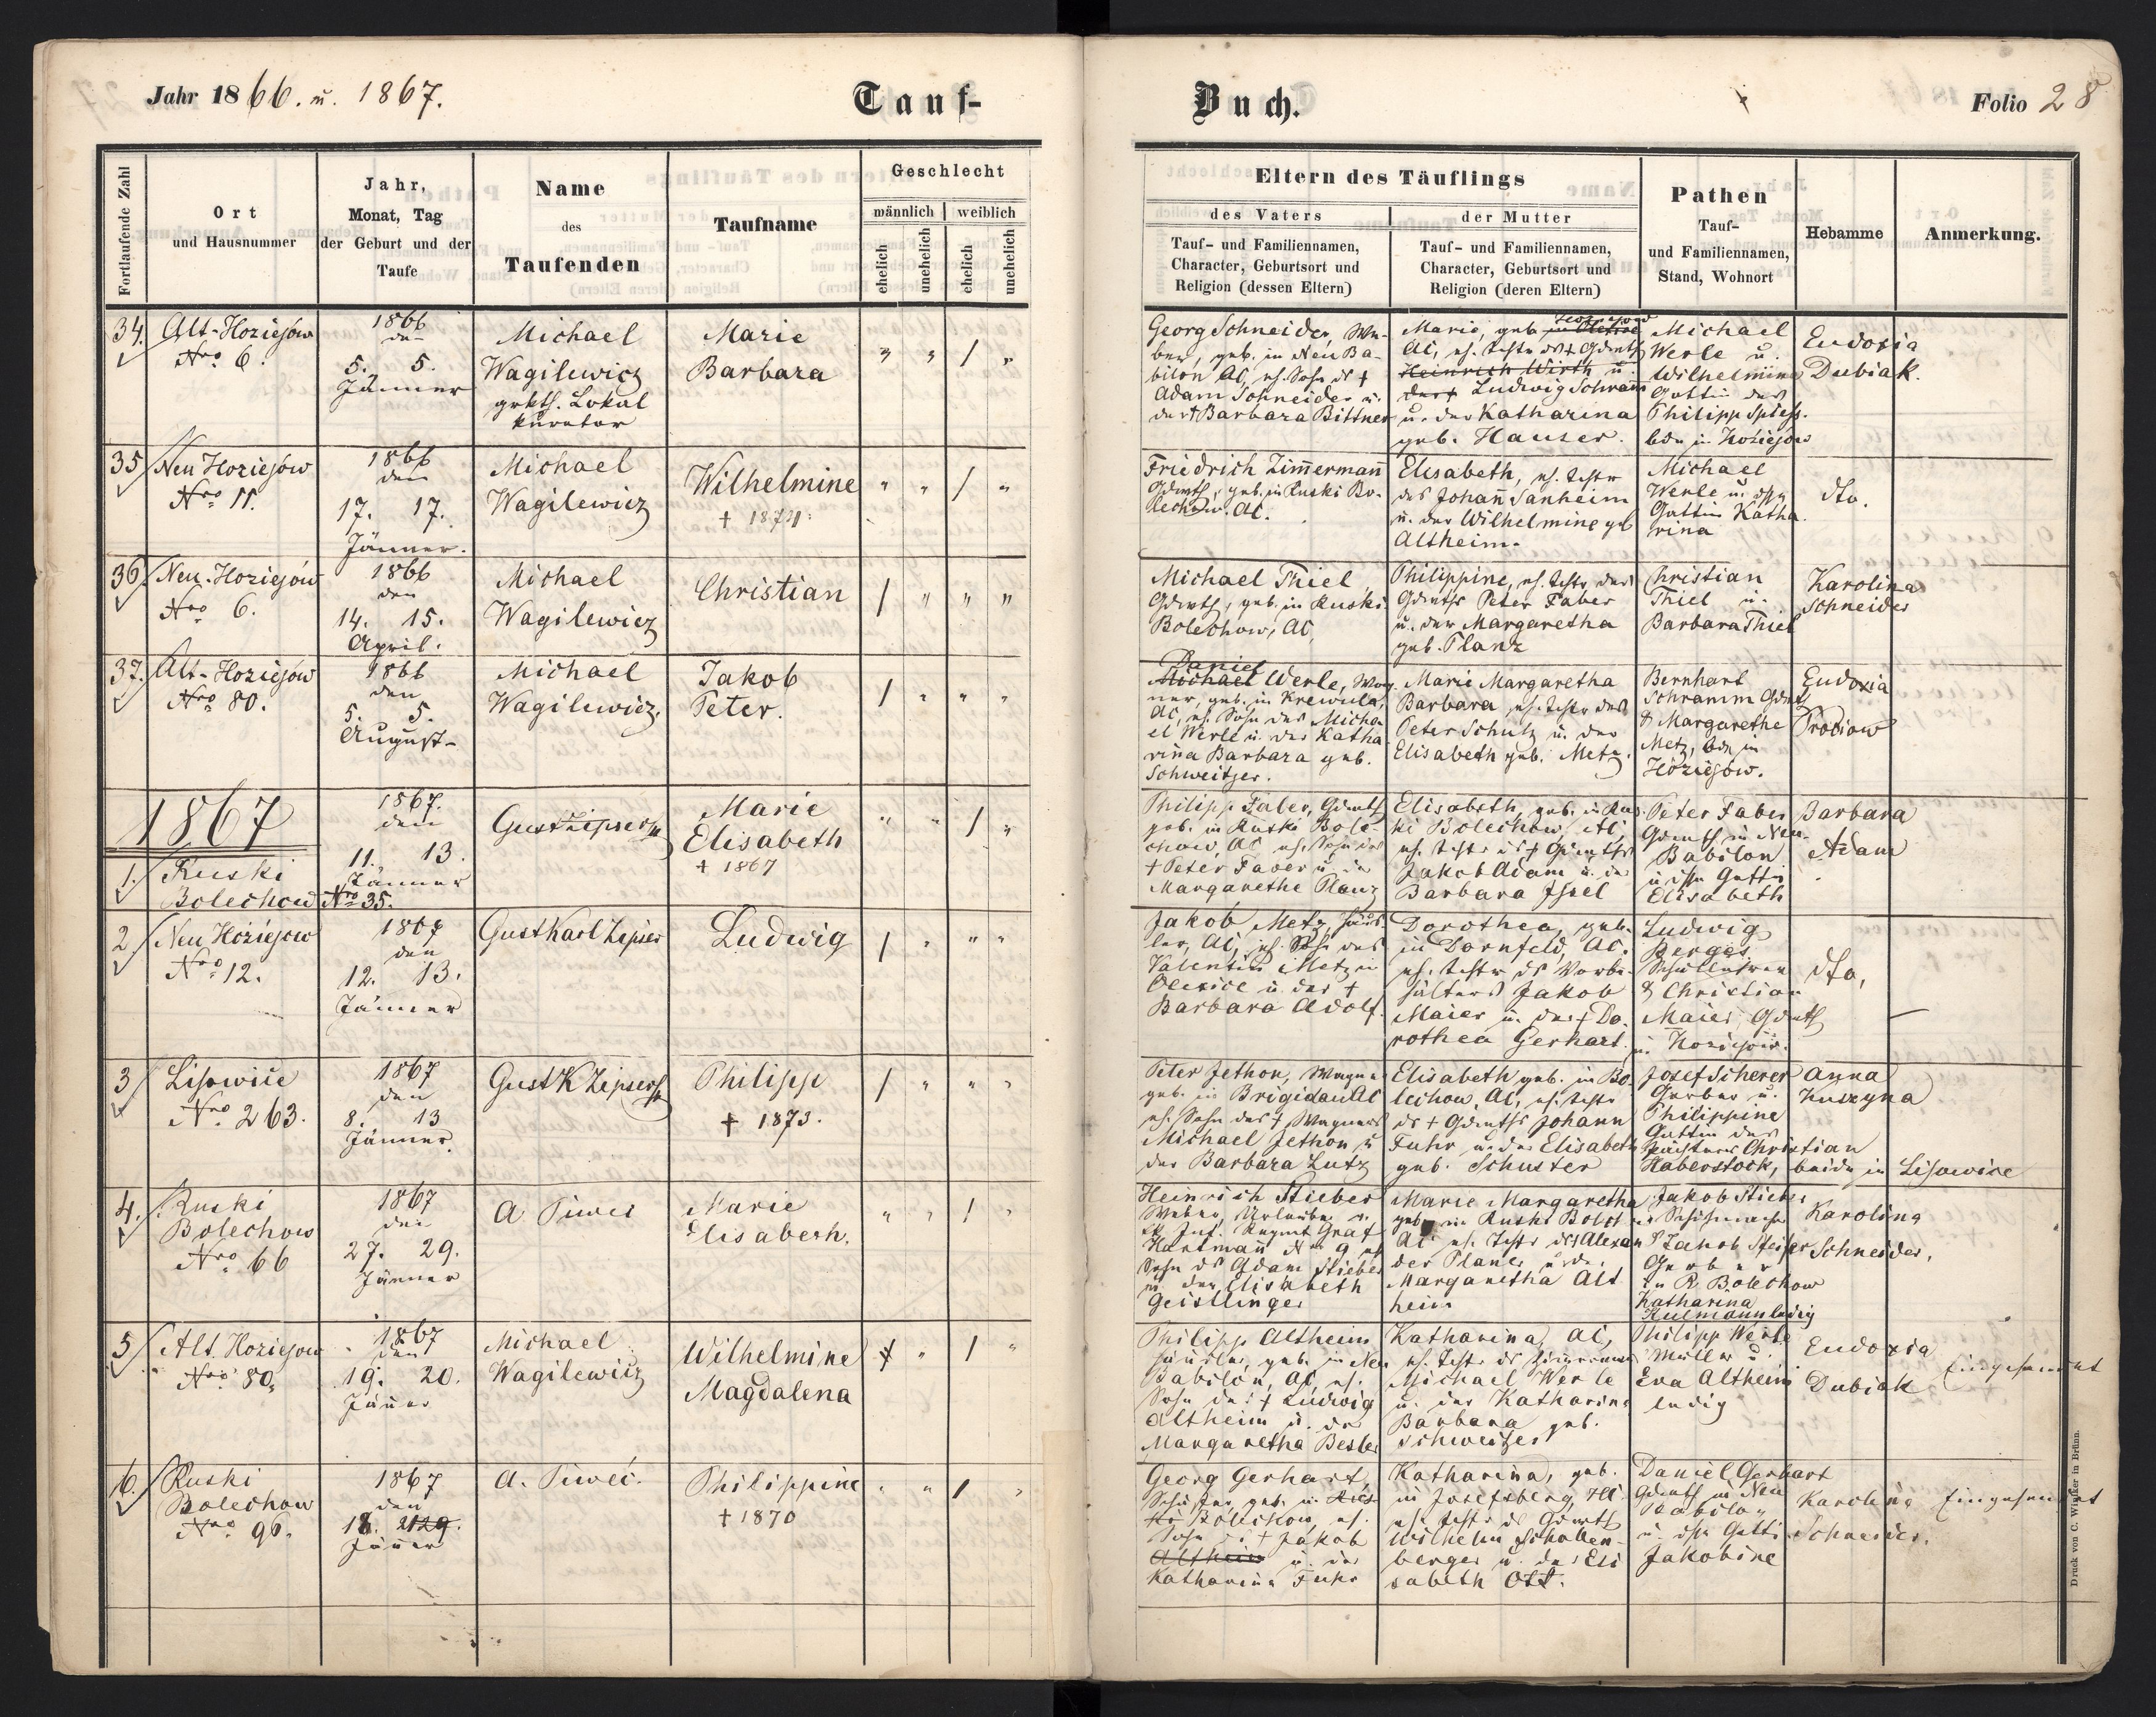 Jahr 1866. u. 1867.
Tauf-
Buch.
Folio 28
Fortlaufende Zahl
Ort
und Hausnummer
Jahr,
Monat, Tag
der Geburt und der
Taufe
Name
des
Taufenden
Taufname
Geschlecht
männlich
weiblich
ehelich
unehelich
ehelich
unehelich
Eltern des Täuflings
des Vaters
Tauf- und Familiennamen,
Character, Geburtsort und
Religion (dessen Eltern)
der Mutter
Tauf- und Familiennamen,
Character, Geburtsort und
Religion (deren Eltern)
Pathen
Tauf-
und Familiennamen,
Stand, Wohnort
Hebamme
Anmerkung.
34.
Alt-Hoziejów
Nro 6.
1866
den
5. 5.
Jänner
Michael
Wagilewicz
grkth. Lokal
kurator
Marie
Barbara
" " / "
Georg Schneider, We-
ber, geb. in Neu Ba-
bilon AC, eh. Sohn ds †
Adam Schneider u.
der † Barbara Bittner
Marie, geb.
AC, eh. Tochtr ds † Gdwrths
Heinrich Wirth u.
Ludwig Schramm
u. der Katharina
geb. Hauser.
Michael
Werle u.
Wilhelmine
Gattin des
Philipp Spiess.
bde in Hoziejów
Eudoxia
Dubiak.
35
Neu Hoziejów
Nro 11.
1866
den
17. 17.
Jänner.
Michael
Wagilewicz
Wilhelmine
† 1871
" " / "
Friedrich Zimmermann
Gdwrth, geb. in Ruski Bo-
lechow. AC.
Elisabeth, eh. Tochtr
des Johann Sanheim
u. der Wilhelmine geb
Altheim.
Michael
Werle u. dssn
Gattin Katha
rina
dto.
36.
Neu-Hoziejów
Nro 6.
1866
den
14. 15.
April.
Michael
Wagilewicz
Christian
/ " " "
Michael Thiel
Gdwrth, geb. in Ruski
Bolechow, AC
Philippine, eh. Tochtr des
Gdwrths Peter Faber
u. der Margaretha
geb. Planz
Christian
Thiel u.
Barbara Thiel
Karolina
Schneider
37.
Alt-Hoziejów
Nro 80.
1866
den
5. 5.
August
Michael
Wagilewicz.
Jakob
Peter.
/ " " "
Daniel
Michael Werle, Wag-
ner, geb. in Krewula,
AC, eh. Sohn des Micha
el Werle u. der Katha
rina Barbara geb.
Schweitzer.
Marie Margaretha
Barbara, eh. Tochtr des
Peter Schulz u. der
Elisabeth geb. Metz.
Bernhart
Schramm Gdwrt
& Margarethe
Metz, bde in
Hoziejów.
Eudoxia
Prociow
1867
1.
Ruski
Bolechow
Nro 35.
1867.
den
11. 13.
Jänner
Gust Zipser
Marie
Elisabeth
† 1867
" " / "
Philipp Faber, Gdwrth
geb. in Ruski Bole-
chow AC eh. Sohn des
† Peter Faber u. der
Margarethe Planz
Elisabeth, geb. in Rus
ki Bolechow, AC,
eh. Tochtr ds † Gdwrths
Jakob Adam u. der
Barbara Issel
Peter Faber
Gdwrth in Neu-
Babilon
u. dssn Gattin
Elisabeth
Barbara
Adam
2
Neu Hoziejow
Nro 12.
1867
den
12. 13.
Jänner
Gust Karl Zipser
Ludwig
/ " " "
Jakob Metz, Häus
ler, AC, eh. Sohn des
Valentin Metz in
u. der †
Barbara Adolf.
Dorothea, geb.
in Dornfeld, AC.
eh. Tochtr ds Vorbe-
Jakob
Maier u. der † Do-
rothea Gerhart.
Ludwig
Berges
Schullehrer
& Christian
Maier, Gdwrth
in Hoziejow.
dto,
3
Lisowice
Nro 263.
1867
den
8. 13
Jänner
Gust K Zipser
Philipp
† 1873.
/ " " "
Peter Jethon, Wagner
geb. in Brigidau AC
eh. Sohn des † Wagners
Michael Jethon u
der Barbara Lutz
Elisabeth geb. in Bo-
lechow, AC, eh. Tochtr
ds † Gdwrths Johann
Fuhr u. der Elisabeth
geb. Schuster
Josef Scherer
Gerber u.
Philippine
Gattin des
Pächters Christian
Haberstock, beide in Lisowice
Anna
Huszyna
4.
Ruski
Bolechow
Nro 66
1867
den
27. 29.
Jänner
A Piwec
Marie
Elisabeth.
" " / "
Heinrich Stieber
Weber, Urlauber v.
kk Inf. Regmt Graf
Hartmann Nro 9 eh
Sohn ds Adam Stieber
u. der Elisabeth
Geistlinger
Marie Margaretha
geb. in Ruski Bolch
AC eh. Tochtr des Alexan
der Planer u. der
Margaretha Alt
heim
Jakob Stieber
Schuhmacher
& Jakob Steifer
Gerber
in R Bolechow
Katharina
Kulmann ledig
Karolina
Schneider.
5
Alt Hoziejow
Nro 80.
1867
den
19. 20.
Jänner
Michael
Wagilewicz
Wilhelmine
Magdalena
" / "
Philipp Altheim
Häusler, geb. in Neu
Babilon, AC eh.
Sohn des † Ludwig
Altheim u. der
Margaretha Besler
Katharina, AC,
eh. Tochtr ds Zimmermanns
Michael Werle
u. der Katharina
Barbara geb.
Schweitzer
Philipp Werle
Müller u.
Eva Altheim
ledig
Eudoxia
Dubiak
Eingesendet
6.
Ruski
Bolechow
Nro 96.
1867
den
18.
Jänner
A. Piwec.
Philippine
† 1870
" " / "
Georg Gerhart,
Schuster, geb. in Rus-
ki Bolechow, eh.
Sohn ds † Jakob
Altheim u. der
Katharina Fuhr
Katharina, geb.
in Josefsberg, HC
eh. Tochtr ds Gdwrth
Wilhelm Schollen-
berger u. der Eli
sabeth Ott.
Daniel Gerhart
Gdwrth in Neu
Babilon
u. dssn Gattin
Jakobine
Karolina
Schneider.
Eingesendet
Druck von C. Winiker in Brünn.